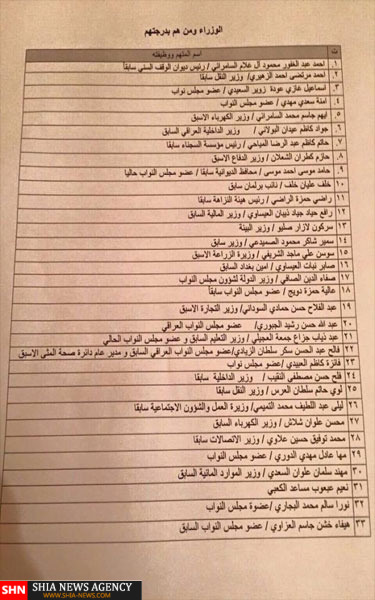 الوزراء ومن هم بدرجتهم
ت اسم المتهم ووظيفته
١. احمد عبد الغفور محمود ال علام السامرائي / رئيس ديوان الوقف السني سابقاً
٢ احمد مرتضى احمد الزهيري/ وزير النقل سابقا
٣. اسماعيل غازي عودة زوير السعيدي/ عضو مجلس نواب
٤ امنة سعدي مهدي / عضو مجلس النواب
٥ ايهم جاسم محمد السامرائي / وزير الكهرباء الاسبق
٦. جواد كاظم عيدان البولاني / وزير الداخلية العراقي السابق
٧. حاتم كاظم عبد الرضا المياحي / رئيس مؤسسة السجناء سابقاً
٨. حازم كطران الشعلان / وزير الدفاع الاسبق
٩. حامد موسى احمد موسى / محافظ الديوانية سابقا / عضو مجلس النواب حاليا
١٠ خلف عليان خلف / نائب برلمان سابق
١١ راضي حمزة الراضي / رئيس هيئة النزاهة سابقا
١٢ رافع حياد جياد ذيبان العيساوي / وزير المالية السابق
١٣ سركون لازار صليو / وزير البيئة
١٤ سمير شاكر محمود الصميدعي / وزير سابق
١٥ سوسن علي ماجد الشريفي / وزيرة الزراعة الاسبق
١٦ صابر نبات العيساوي / امين بغداد السابق
١٧ صفاء الدين الصافي / وزير الدولة لشؤون مجلس النواب
١٨ عالية حمزة دويج / عضو مجلس النواب سابقاً
١٩ عبد الفلاح حسن حمادي السوداني/ وزير التجارة الاسبق
٢٠ عبد الله حسن رشيد الجبوري/ عضو مجلس النواب العراقي
٢١ عبد ذياب جزاع جمعة العجيلي / وزير التعليم السابق و عضو مجلس النواب الحالي
٢٢ فالح عبد الحسن سكر سلطان الزيادي/عضو مجلس النواب العراقي السابق و مدير عام دائرة صحة المثنى الاسبق
٢٣ فائزة كاظم العبيدي / عضو مجلس نواب
٢٤ فلاح حسن مصطفى النقيب / وزير الداخلية سابقا
٢٥ لؤي حاتم سلطان العرس / وزير النقل سابقا
٢٦ ليلى عبد اللطيف محمد التميمي/ وزيرة العمل والشؤون الاجتماعية سابقا
٢٧ محسن علوان شلاش / وزير الكهرباء السابق
٢٨ محمد توفيق حسين علاوي / وزير الاتصالات سابقا
٢٩ مها عادل مهدي الدوري / عضو مجلس النواب
٣٠ مهند سلمان علوان السعدي / وزير الموارد المائية السابق
٣١ نعيم عبعوب مساعد الكعبي
٣٢ نورا سالم محمد البجاري / عضوة مجلس النواب
٣٣ هيفاء خشن جاسم العزاوي / عضو مجلس النواب السابق
SHN SHIA NEWS AGENCY
WWW.SHIA-NEWS.COM